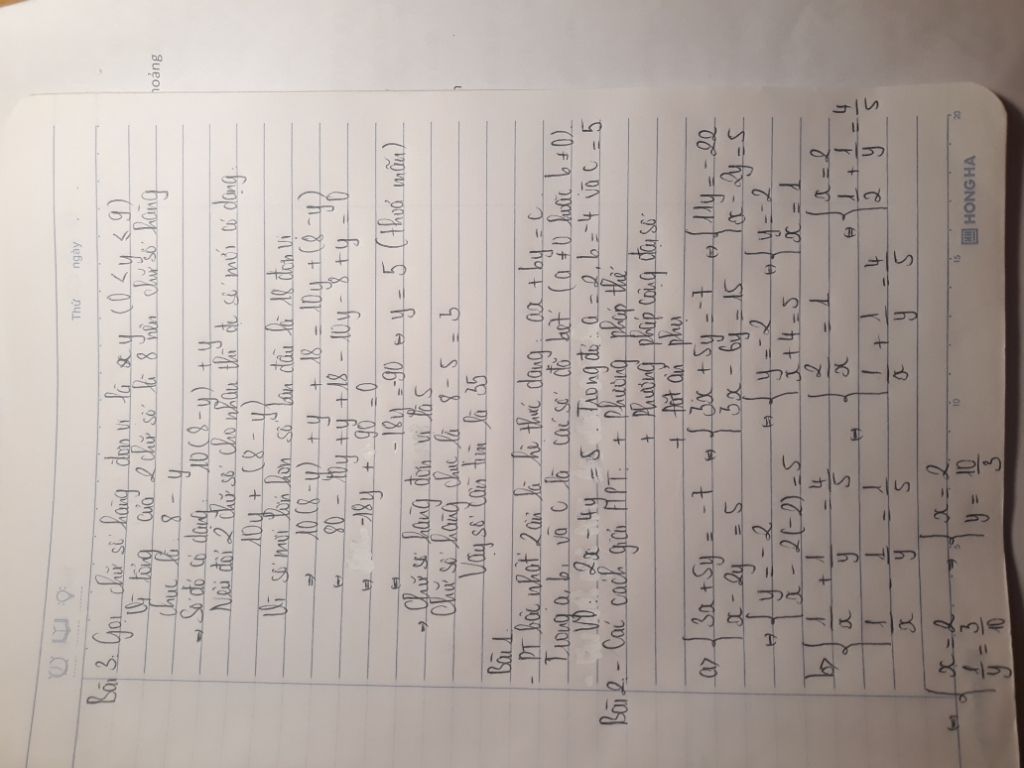 Thứ ngày
Bài 3: Gọi chữ số hàng đơn vị là y (0 < y ≤ 9)
Vì tổng của 2 chữ số là 8 nên chữ số hàng
chục là 8 - y
→ Số đó có dạng 10(8-y) + y
Nếu đổi 2 chữ số cho nhau thì số mới có dạng
10y + (8 - y)
Vì số mới lớn hơn số ban đầu là 18 đơn vị
⇒ 10(8-y) + y + 18 = 10y + (8-y)
⇔ 80 - 10y + y + 18 - 10y - 8 + y = 0
⇔ -18y + 90 = 0
⇔ -18y = -90 ⇔ y = 5 (thoả mãn)
→ Chữ số hàng đơn vị là 5
Chữ số hàng chục là 8 - 5 = 3
Vậy số cần tìm là 35
Bài 1
- PT bậc nhất 2 ẩn là hệ thức dạng: ax + by = c
Trong a, b, và c là các số đã biết (a ≠ 0 hoặc b ≠ 0)
VD: 2x - 4y = 5. Trong đó: a = 2, b = -4 và c = 5
Bài 2 - Các cách giải HPT: + Phương pháp thế
+ Phương pháp cộng đại số
+ Đặt ẩn phụ
a> { 3x + 5y = -7 ⇔ { 3x + 5y = -7 ⇔ { 11y = -22
x - 2y = 5 3x - 6y = 15 x - 2y = 5
⇔ { y = -2 ⇔ { y = -2 ⇔ { y = -2
x - 2(-2) = 5 x + 4 = 5 x = 1
b> { 1/x + 1/y = 4/5 ⇔ { 2/x = 1 ⇔ { x = 2
1/x - 1/y = 1/5 1/x + 1/y = 4/5 1/2 + 1/y = 4/5
⇔ { x = 2 → { x = 2
1/y = 3/10 y = 10/3
5 10 15 20
HONG HA